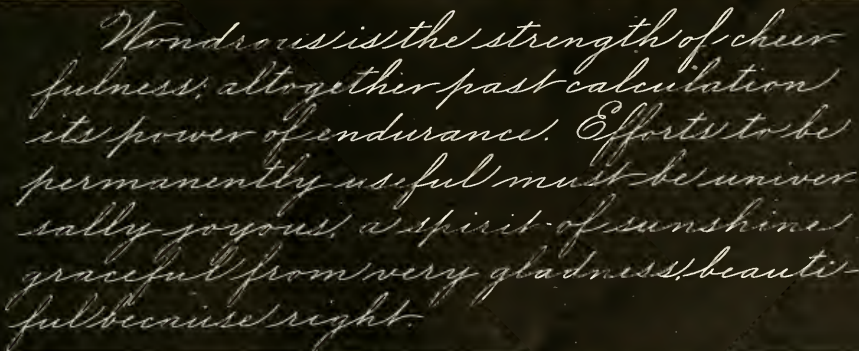 Wondrous is the strength of cheer-
fulness; altogether past calculation
its power of endurance. Efforts to be
permanently useful must be univer-
sally joyous, a spirit of sunshine
graceful from very gladness, beauti-
ful because right.